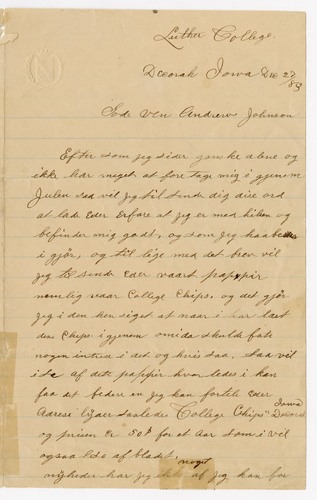 Luther College.
Decorah Iowa Dec 27
/83
Gode Ven Andrew Johnson
Efter som jeg sider ganske alene og
ikke har meget at fore tage mig i gjennem
Julen saa vil jeg til sende dig dise ord
at lade eder erfore at jeg er med hilsen og
befinder mig godt, og som jeg haaber
i gjør, og til lige med det brev vil
jeg til sende eder vaart pappir
nemlig vaar College Chips, og det gjør
jeg i den hen sigt at naar i har læst
den Chips igjennem om i da skulde fate
nogen intres i det og hvis saa, saa vil
i se af dette pappir hvor ledes i kan
faa det bedere en jeg kan fortele eder
Adresi saaledes "College Chips" Decorah
Iowa
og prisen er 50¢ for et aar som i vil
ogsaa se af bladet.
noget
nyheder har jeg ikke af jeg kan for